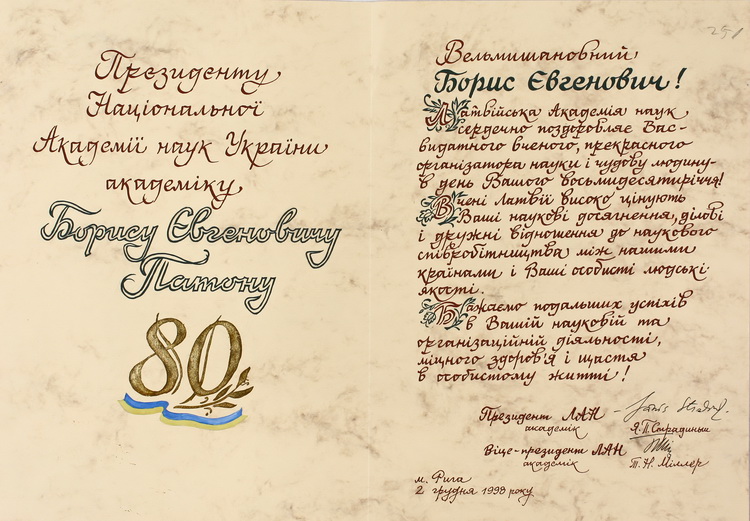 Президенту
Національної
Академії наук України
академіку
Борису Євгеновичу
Патону
80
251
Вельмишановний
Борис Євгенович!
Латвійська Академія наук
сердечно поздоровляє Вас-
видатного вченого, прекрасного
організатора науки і чудову людину-
в день Вашого восьмидесятиріччя!
Вчені Латвії високо цінують
Ваші наукові досягнення, ділові
і дружні відношення до наукового
співробітництва між нашими
країнами і Ваші особисті людські
якості.
Бажаємо подальших успіхів
в Вашій науковій та
організаційній діяльності,
міцного здоров'я і щастя
в особистому житті!
Президент ЛАН -
академік Я.П. Страдиньш
Віце-президент ЛАН
академік Т.Н. Міллер
м. Рига
2 грудня 1998 року